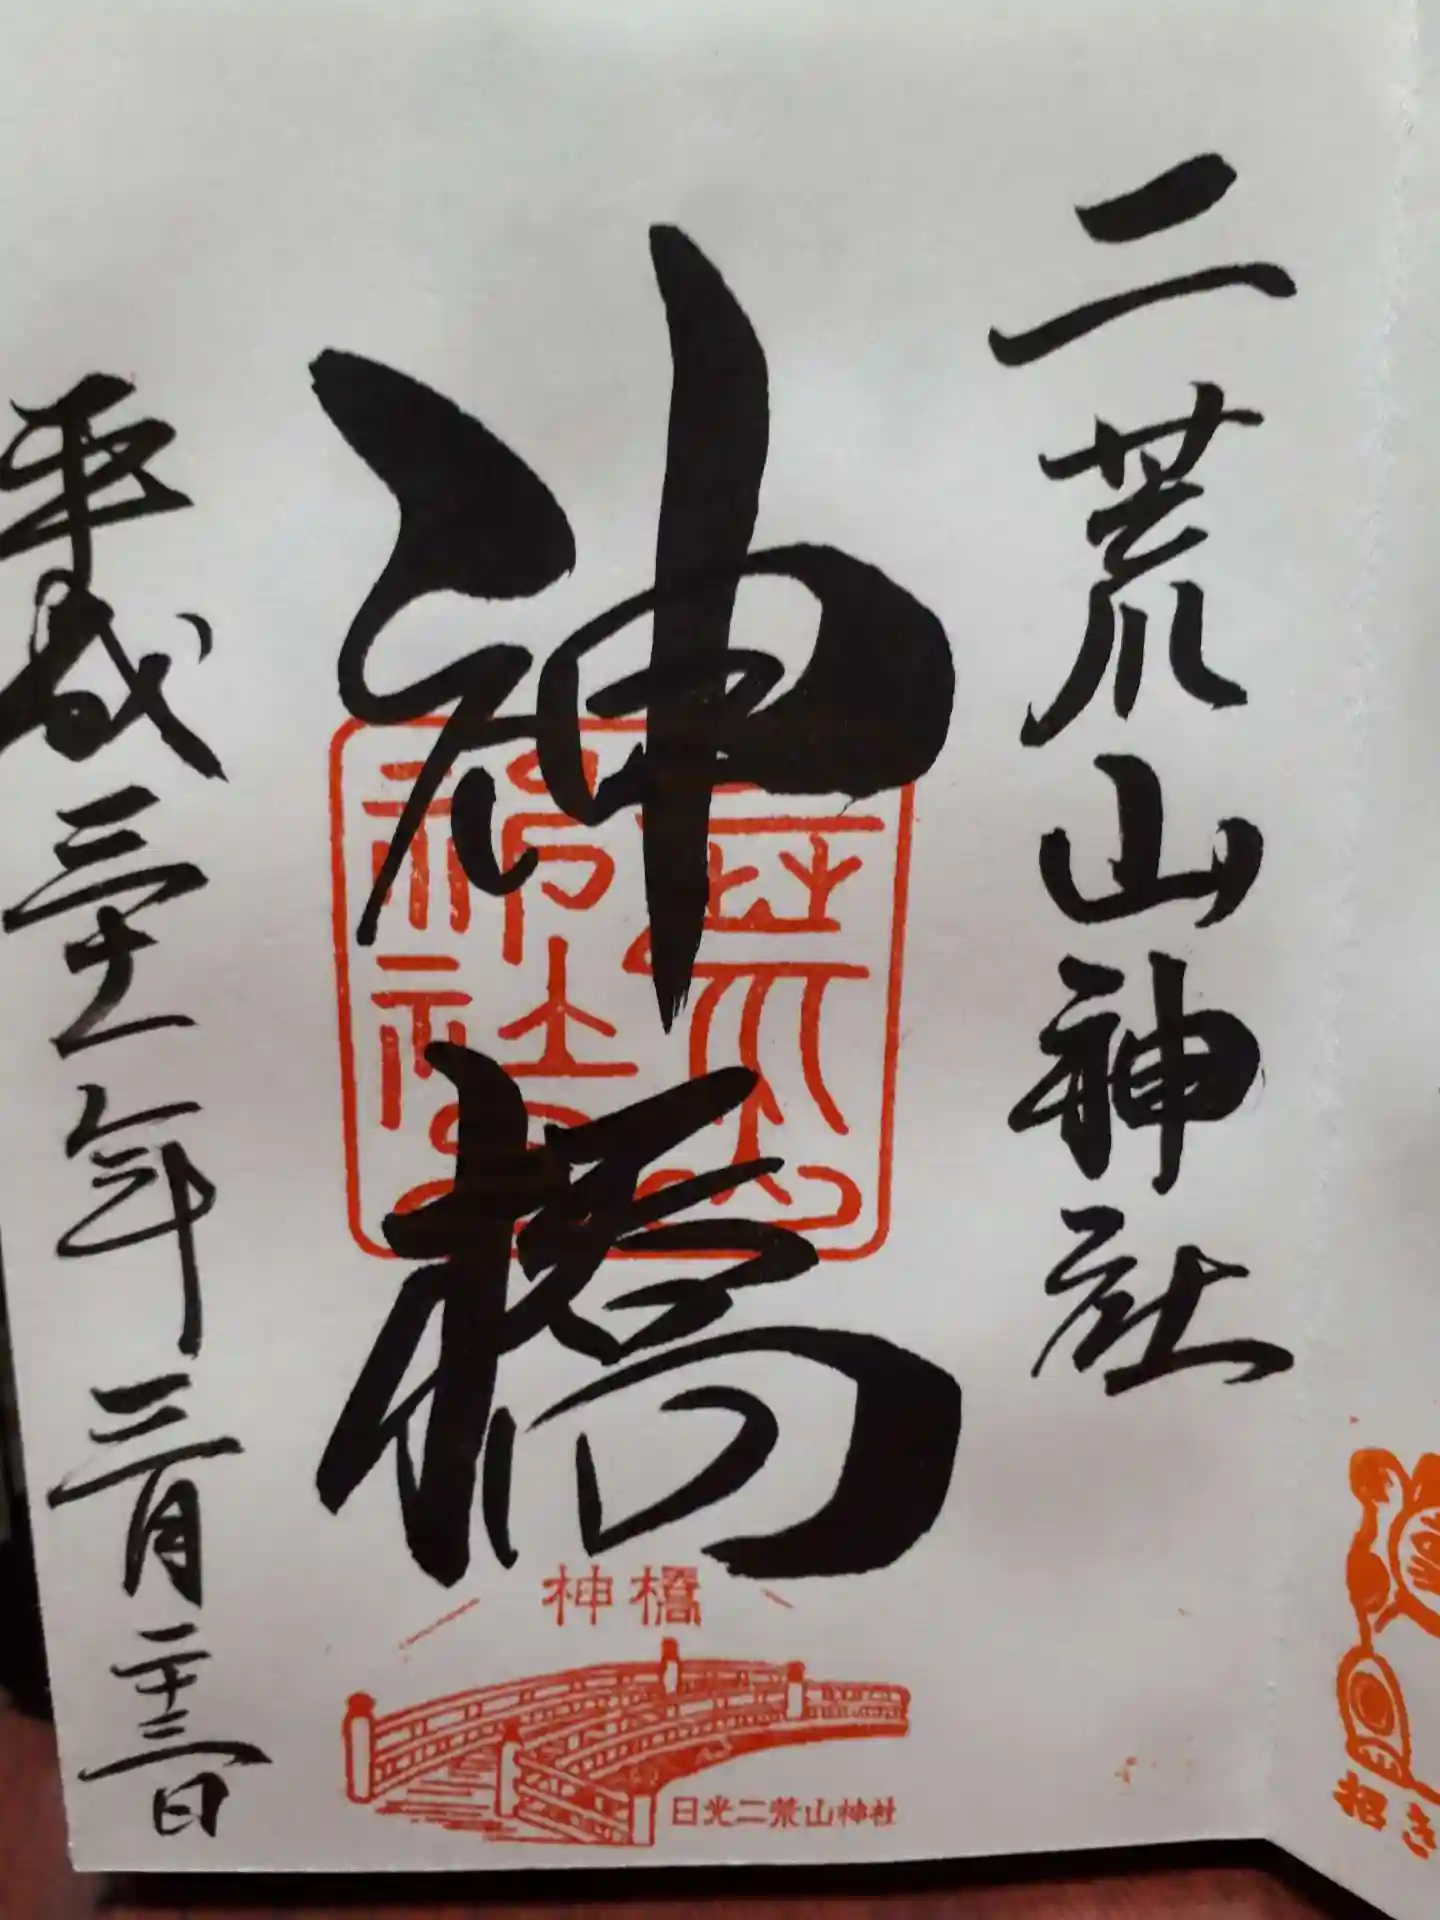 二荒山神社
神橋
二荒山
神社
神橋
日光二荒山神社
平成三十一年三月二十三日
招き